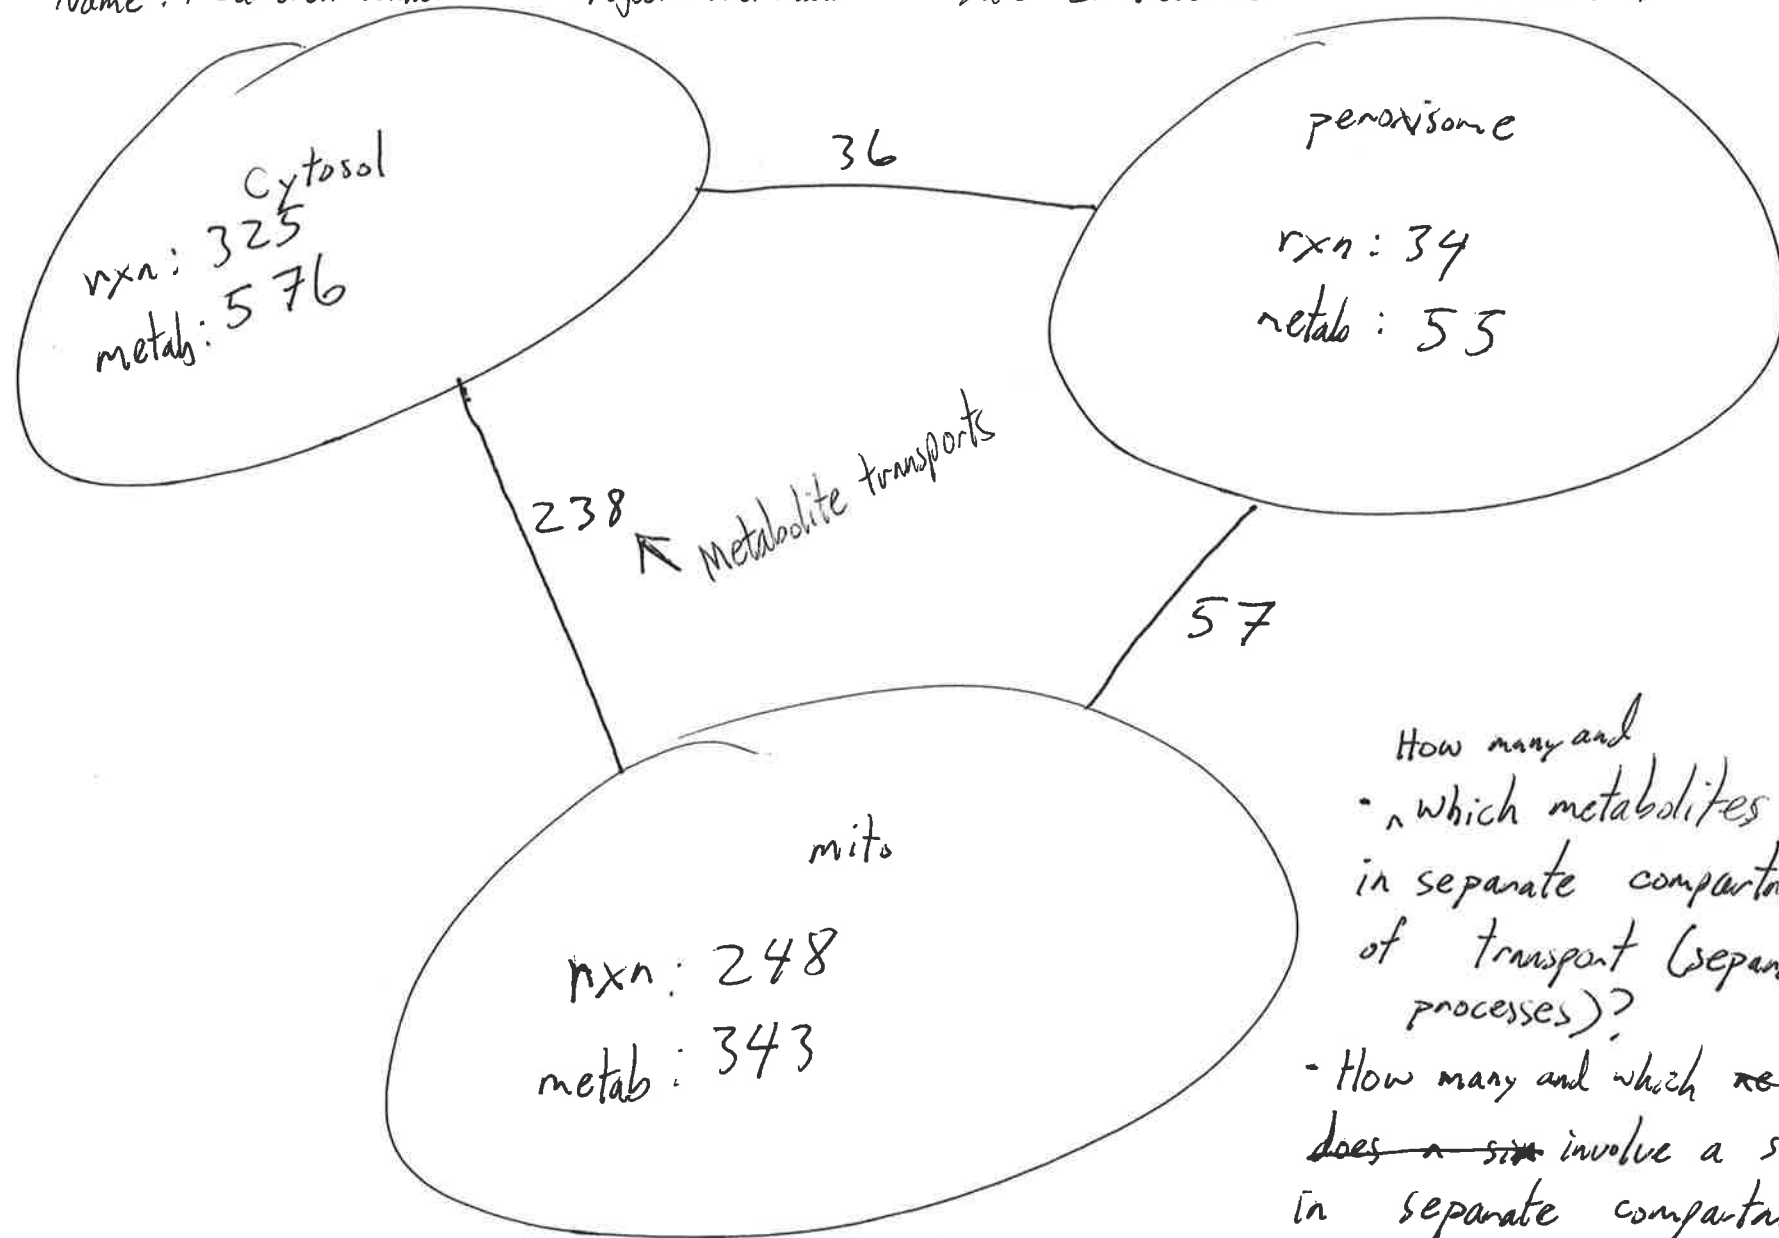 Name :
Cytosol
rxn: 325
metab: 576
36
peroxisome
rxn: 34
metab: 55
238
Metabolite transports
57
mito
rxn: 248
metab: 343
How many and
- ^ which metabolites
in separate
of transport
processes)?
- How many and which
does involve a
in separate